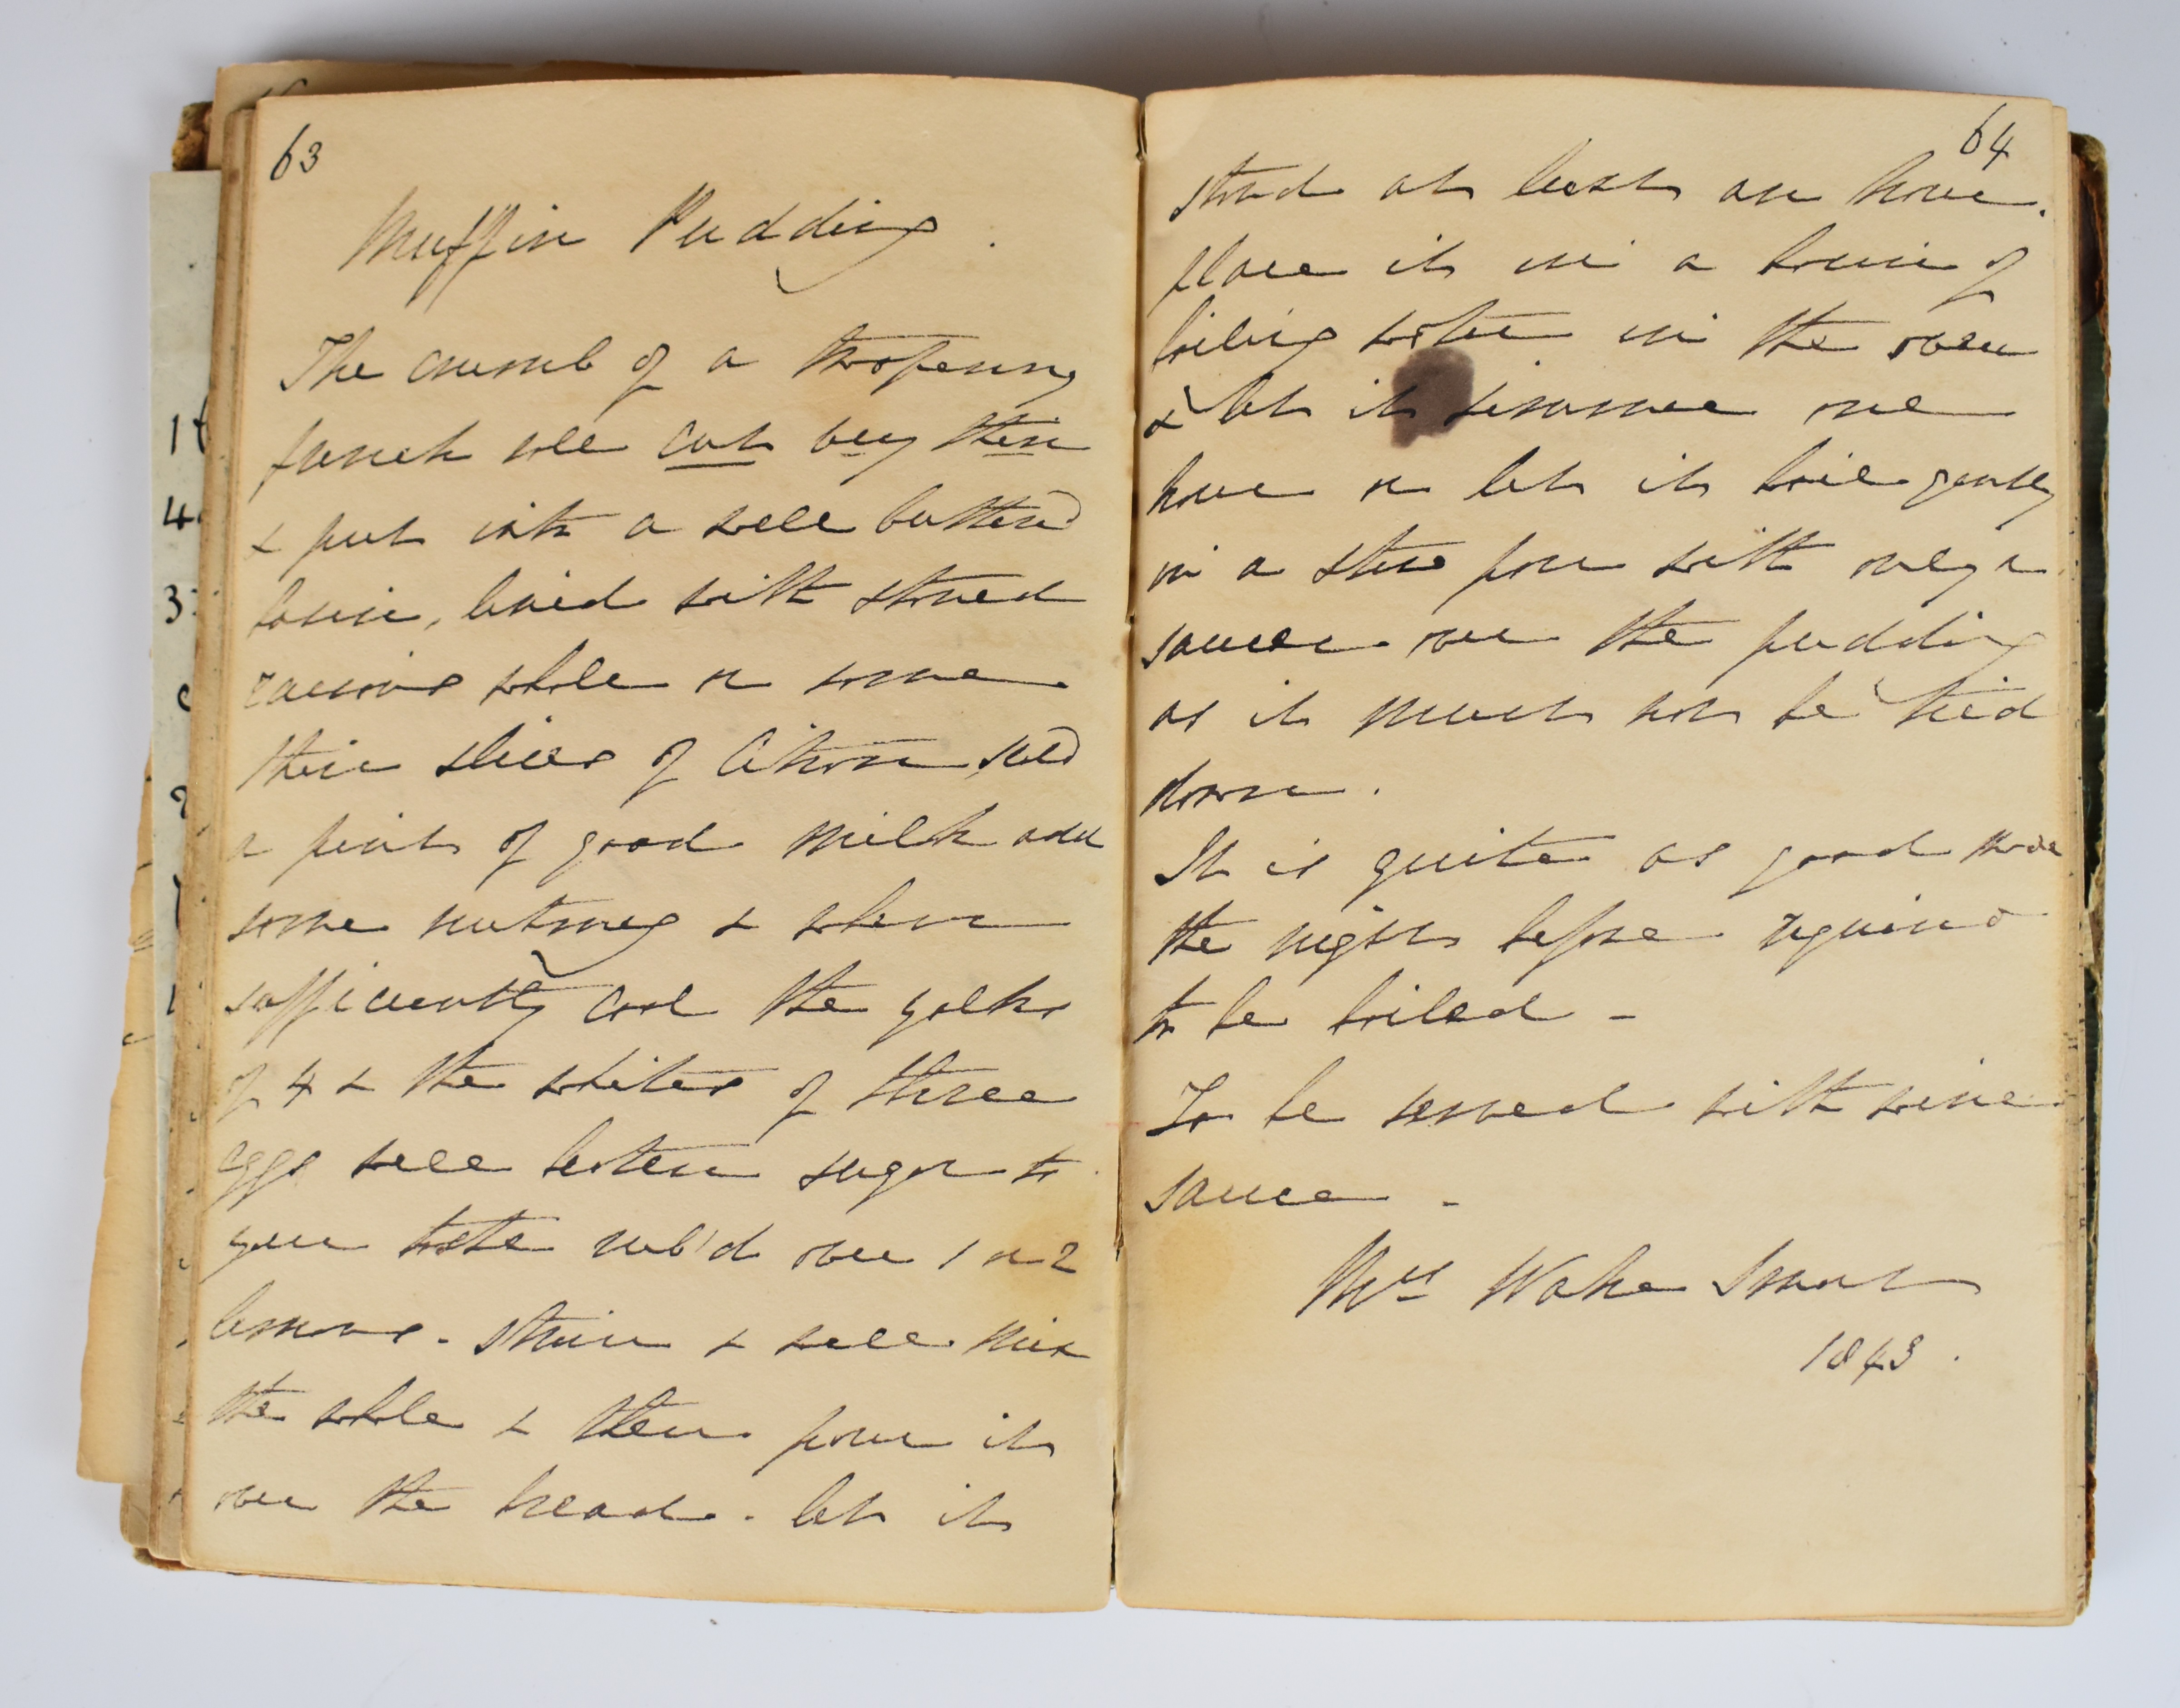 63
Muffin Pudding.
The crumb of a twopenny
french roll cut very thin
& put into a well butter'd
basin, lined with stoned
raisins whole or some
thin slices of Citron, 
a pint of good Milk add
some nutmeg & when
sufficiently cool the yolks
of 4 & the whites of three
eggs well beaten sugar to
your taste rub'd over 1 or 2
lemons. strain & well mix
the whole & then pour it
over the bread. let it
64
stand at least an hour.
place it in a basin of
boiling water in the oven
& let it simmer one
hour or let it boil gently
in a stew pan with only a
saucer over the pudding
as it must not be tied
down.
It is quite as good made
the night before required
to be boiled -
To be served with wine
sauce -
Mrs Wake Smart
1843.